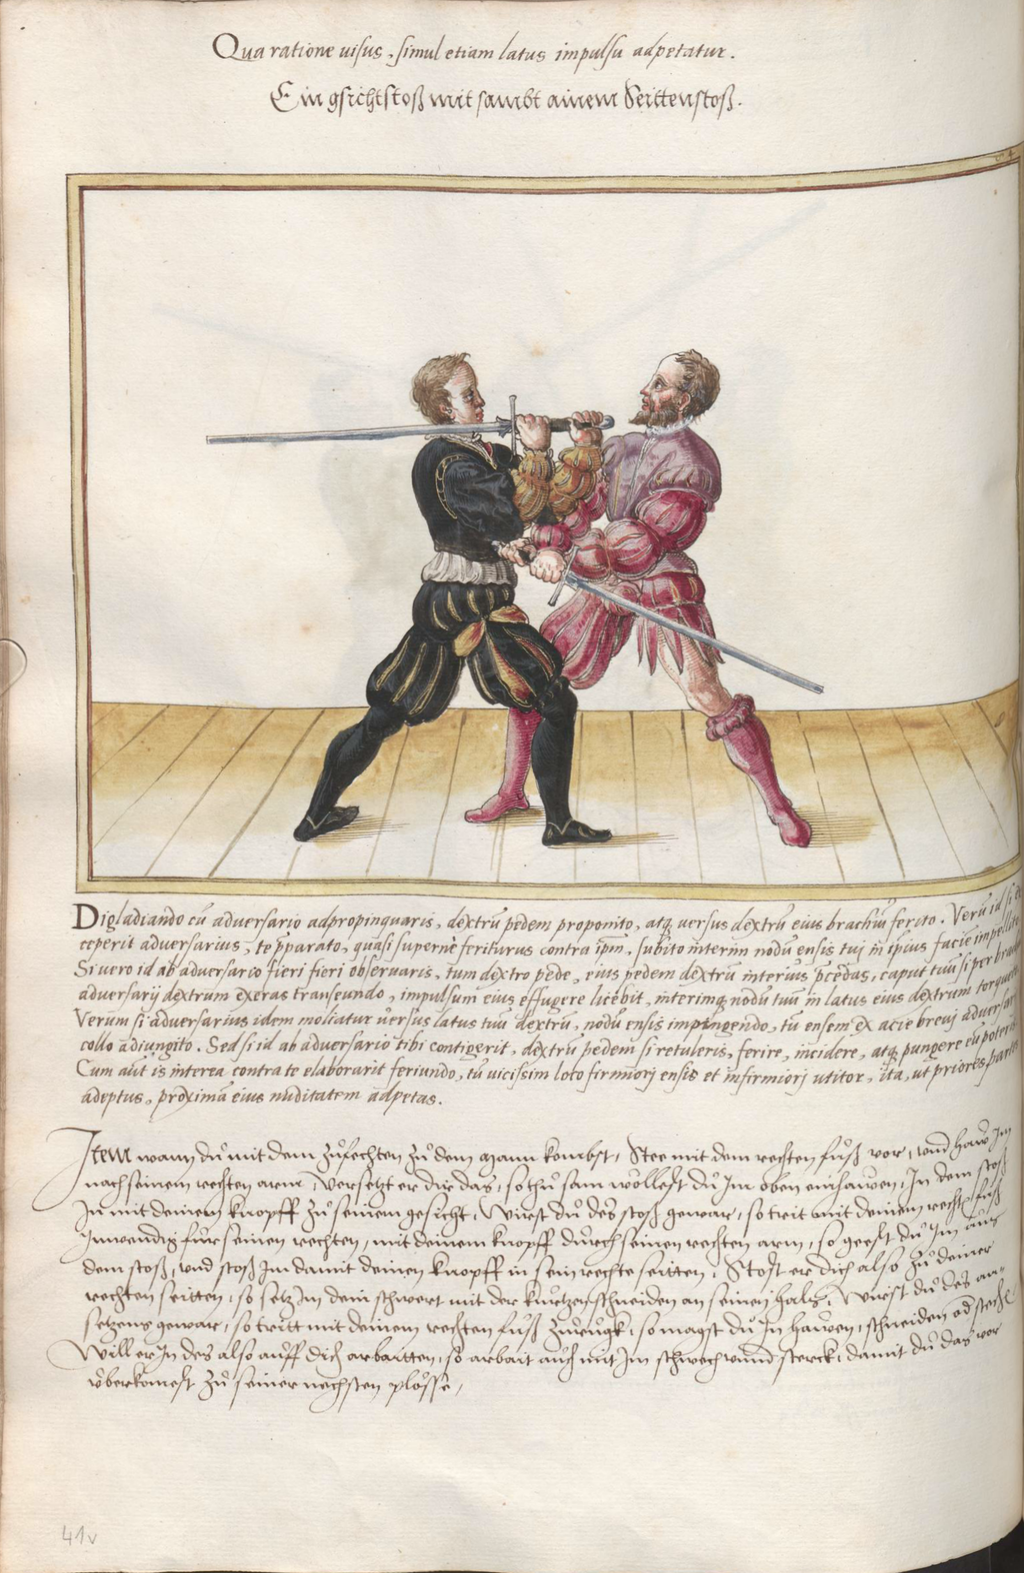 Qua ratione uisus, simul etiam latus impulsu adpetatur.
Ein gsichtstoß mit sambt ainem Seittenstoß.
Digladiando cũ adversario adpropinquaris, dextrũ pedem proponito, atq versus dextrũ eius brachiũ ferito. Verũ id si
ceperit adversarius, te p̄parato, quasi superne feriturus contra ipm, subito interim nodũ ensis tui in ipius faciẽ
Si vero id ab adversario fieri fieri observaris, tum dextro pede, eius pedem dextrũ interius p̄cedas, caput tuũ si per
adversarij dextrum exeras transeundo, impulsum eius effugere licebit, interimq nodũ tuũ in latus eius dextrum
Verum si adversarius idem moliatur versus latus tuũ dextrũ, nodũ ensis impingendo, tũ ensem ex acie brevj
collo adiungito. Sed si id ab adversario tibi contigerit, dextrũ pedem si retuleris, ferire, incidere, atq pungere eũ poteris
Cum aũt is interea contra te elaborarit feriundo, tũ vicissim loco firmiorj ensis et infirmiorj utitor, ita, ut priores partes
adeptus, proximã eius nuditatem adpetas.
Item wann du mit dem zufechten zu dem mann kombst, Stee mit dem rechten fuß vor, vnd haw Im
nach seinem rechten arm, versetzt er dir das, so thu sam wöllest du Im oben einhawen, In dem stoß
In mit deinem knopff zu seinem gesicht, Wirst du des stoß gewar, so trit mit deinem recht fuß
Inwendig für seinen rechten, mit deinem knopff durch seinen rechten arm, so geest du Im auß
dem stoß, vnd stoß Im damit deinen knopff in sein rechte seitten, Stost er dich also zu deiner
rechten seitten, so setz Im dein schwert mit der kurtzen schneiden an seinen hals, Wirst du des an-
setzens gewar, so tritt mit deinem rechten fuß zurugk, so magst du In hawen, schneiden od steche
Will er In des also auff dich arbaitten, so arbait auch mit Im schwech vnnd sterck, damit du das vor
überkomest zu seiner nechsten plösse,
41v